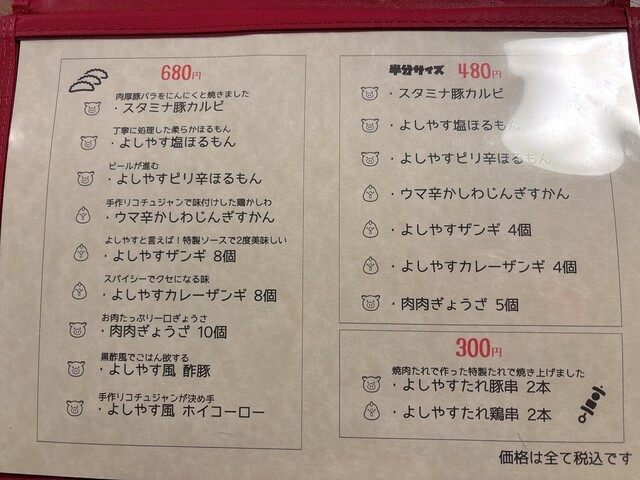 680円
肉厚豚バラをにんにくと焼きました
・スタミナ豚カルビ
丁寧に処理した柔らかほるもん
・よしやす塩ほるもん
ビールが進む
・よしやすピリ辛ほるもん
手作りコチュジャンで味付けした鶏かしわ
・ウマ辛かしわじんぎすかん
よしやすと言えば！特製ソースで2度美味しい
・よしやすザンギ 8個
スパイシーでクセになる味
・よしやすカレーザンギ 8個
お肉たっぷり一口ぎょうざ
・肉肉ぎょうざ 10個
黒酢風でごはん欲する
・よしやす風 酢豚
手作りコチュジャンが決め手
・よしやす風 ホイコーロー
半分サイズ 480円
・スタミナ豚カルビ
・よしやす塩ほるもん
・よしやすピリ辛ほるもん
・ウマ辛かしわじんぎすかん
・よしやすザンギ 4個
・よしやすカレーザンギ 4個
・肉肉ぎょうざ 5個
300円
焼肉たれで作った特製たれで焼き上げました
・よしやすたれ豚串 2本
・よしやすたれ鶏串 2本
価格は全て税込です